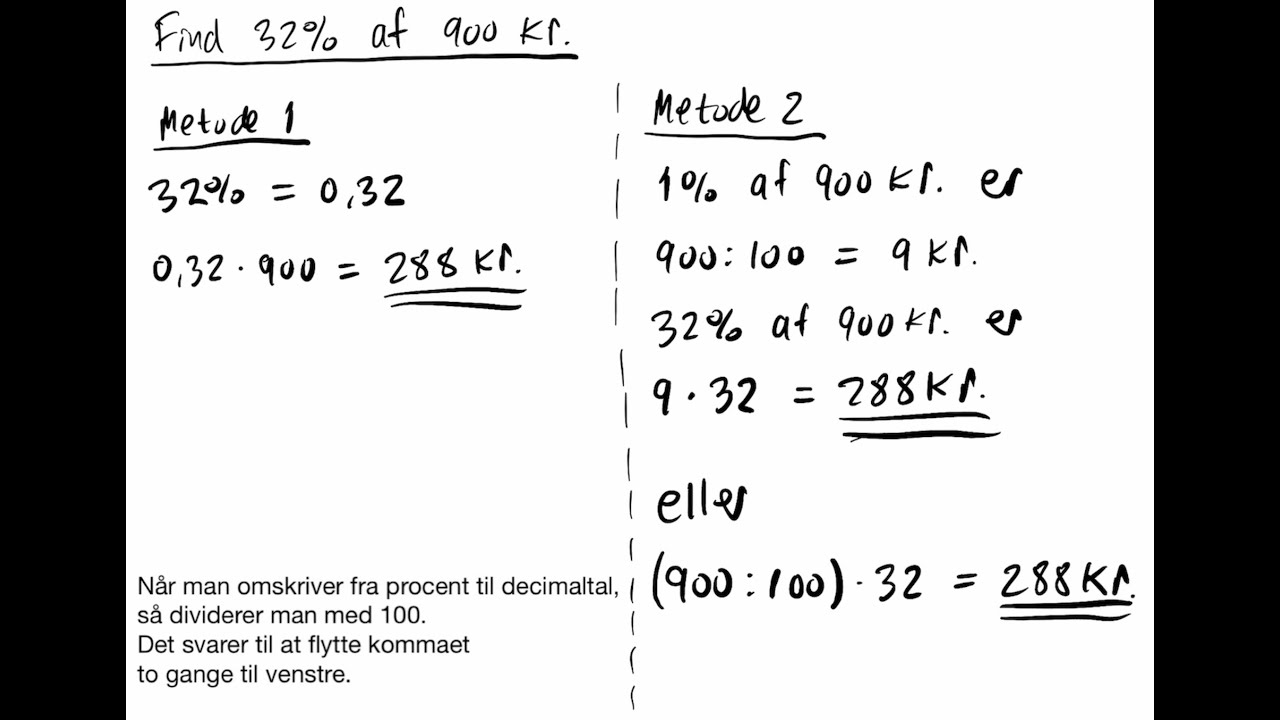 Find 32% af 900 kr.
Metode 1
32% = 0,32
0,32 · 900 = 288 kr.
Når man omskriver fra procent til decimaltal,
så dividerer man med 100.
Det svarer til at flytte kommaet
to gange til venstre.
Metode 2
1% af 900 kr. er
900 : 100 = 9 kr.
32% af 900 kr. er
9 · 32 = 288 kr.
eller
(900 : 100) · 32 = 288 kr.